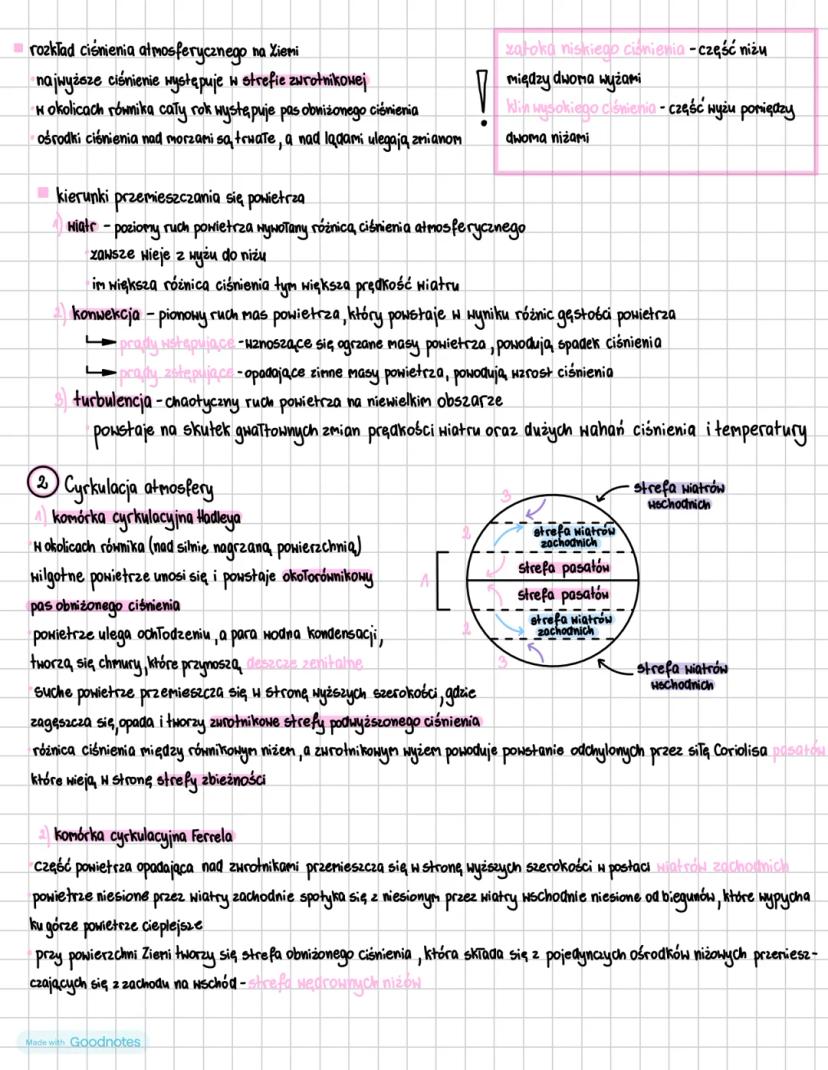 rozkład ciśnienia atmosferycznego na Ziemi
najwyższe ciśnienie występuje w strefie zwrotnikowej
w okolicach równika cały rok występuje pas obniżonego ciśnienia
ośrodki ciśnienia nad morzami są trwałe, a nad lądami ulegają zmianom
!
zatoka niskiego ciśnienia - część niżu
między dwoma wyżami
klin wysokiego ciśnienia - część wyżu pomiędzy
dwoma niżami
kierunki przemieszczania się powietrza
1) wiatr - poziomy ruch powietrza wywołany różnicą ciśnienia atmosferycznego
zawsze wieje z wyżu do niżu
im większa różnica ciśnienia tym większa prędkość wiatru
2) konwekcja - pionowy ruch mas powietrza, który powstaje w wyniku różnic gęstości powietrza
prądy wstępujące - wznoszące się ogrzane masy powietrza, powodują spadek ciśnienia
prądy zstępujące - opadające zimne masy powietrza, powodują wzrost ciśnienia
3) turbulencja - chaotyczny ruch powietrza na niewielkim obszarze
powstaje na skutek gwałtownych zmian prędkości wiatru oraz dużych wahań ciśnienia i temperatury
2 Cyrkulacja atmosfery
1) komórka cyrkulacyjna Hadleya
w okolicach równika (nad silnie nagrzaną powierzchnią)
wilgotne powietrze unosi się i powstaje okołorównikowy
pas obniżonego ciśnienia
powietrze ulega ochłodzeniu, a para wodna kondensacji,
tworzą się chmury, które przynoszą deszcze zenitalne
suche powietrze przemieszcza się w stronę wyższych szerokości, gdzie
zagęszcza się, opada i tworzy zwrotnikowe strefy podwyższonego ciśnienia
różnica ciśnienia między równikowym niżem, a zwrotnikowym wyżem powoduje powstanie odchylonych przez siłę Coriolisa pasatów
które wieją w stronę strefy zbieżności
3
strefa wiatrów
wschodnich
2
strefa wiatrów
zachodnich
1
strefa pasatów
strefa pasatów
2
strefa wiatrów
zachodnich
3
strefa wiatrów
wschodnich
2) komórka cyrkulacyjna Ferrela
część powietrza opadająca nad zwrotnikami przemieszcza się w stronę wyższych szerokości w postaci wiatrów zachodnich
powietrze niesione przez wiatry zachodnie spotyka się z niesionym przez wiatry wschodnie niesione od biegunów, które wypycha
ku górze powietrze cieplejsze
przy powierzchni Ziemi tworzy się strefa obniżonego ciśnienia, która składa się z pojedynczych ośrodków niżowych przemiesz-
czających się z zachodu na wschód - strefa wędrownych niżów
Made with Goodnotes